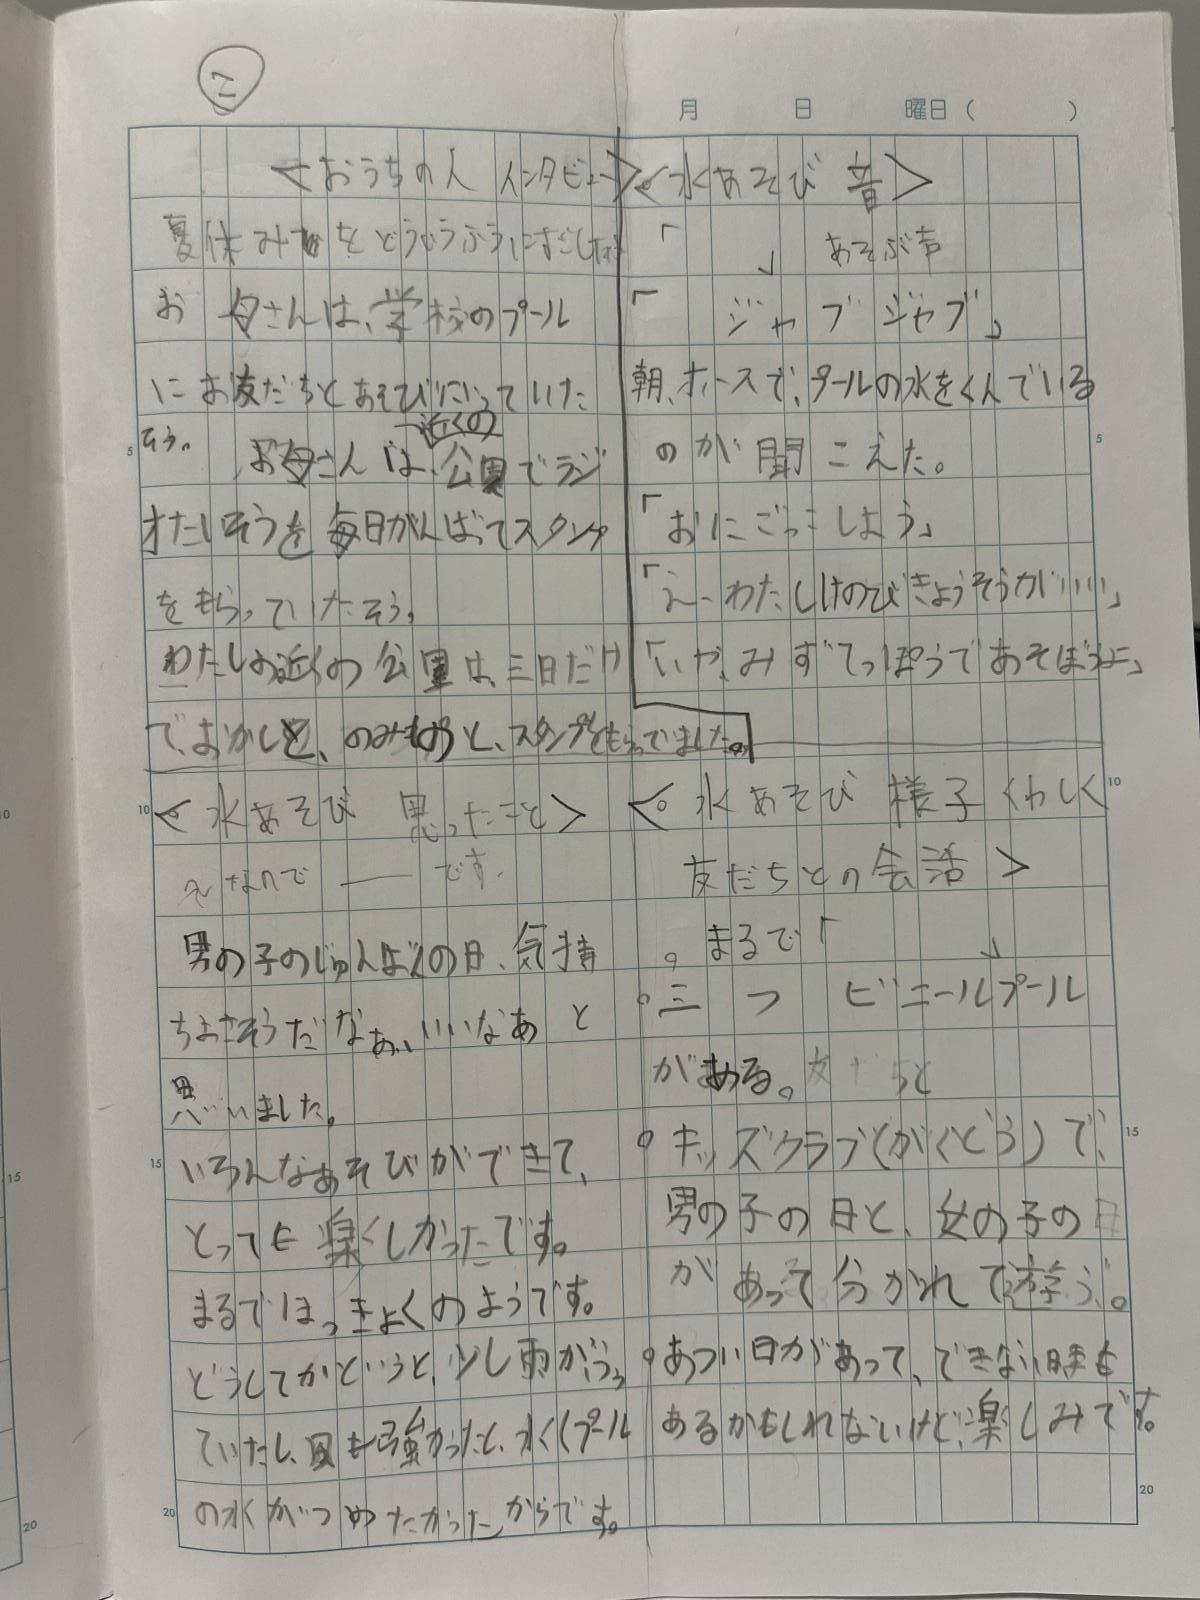 二
月 日 曜日( )
<おうちの人 インタビュー>
夏休みをどういうふうにすごしたか
お母さんは、学校のプール
にお友だちとあそびにいっていた
そう。
お母さんは、近くの公園でラジ
オたいそうを毎日がんばってスタンプ
をもらっていたそう。
わたしの近くの公園は、三日だけ
で、おかしと、のみものと、スタンプをもらってました。
<水あそび 音>
「 」 あそぶ声
「ジャブジャブ」
朝、ホースで、プールの水をくんでいる
のが聞こえた。
「おにごっこしよう」
「えーわたしけのびきょうそうがいい」
「いや、みずてっぽうであそぼうよ」
<水あそび 思ったこと>
えなんで ― です。
男の子のじゅんばんの日、気持
ちよさそうだなぁ、いいなあと
思いました。
いろんなあそびができて、
とっても楽しかったです。
まるでほっきょくのようです。
どうしてかというと、少し雨がふっ
ていたし、風も強かったし、水(プール
の水がつめたかったからです。
<水あそび 様子 くわしく
友だちとの会話>
。まるで「 」
。三つ ビニールプール
がある。友だちと
。キッズクラブ(がくどう)で、
男の子の日と、女の子の日
があって分かれて遊ぶ。
。あつい日があって、できない時も
あるかもしれないけど、楽しみです。
5
10
15
20
5
10
15
20
10
15
20